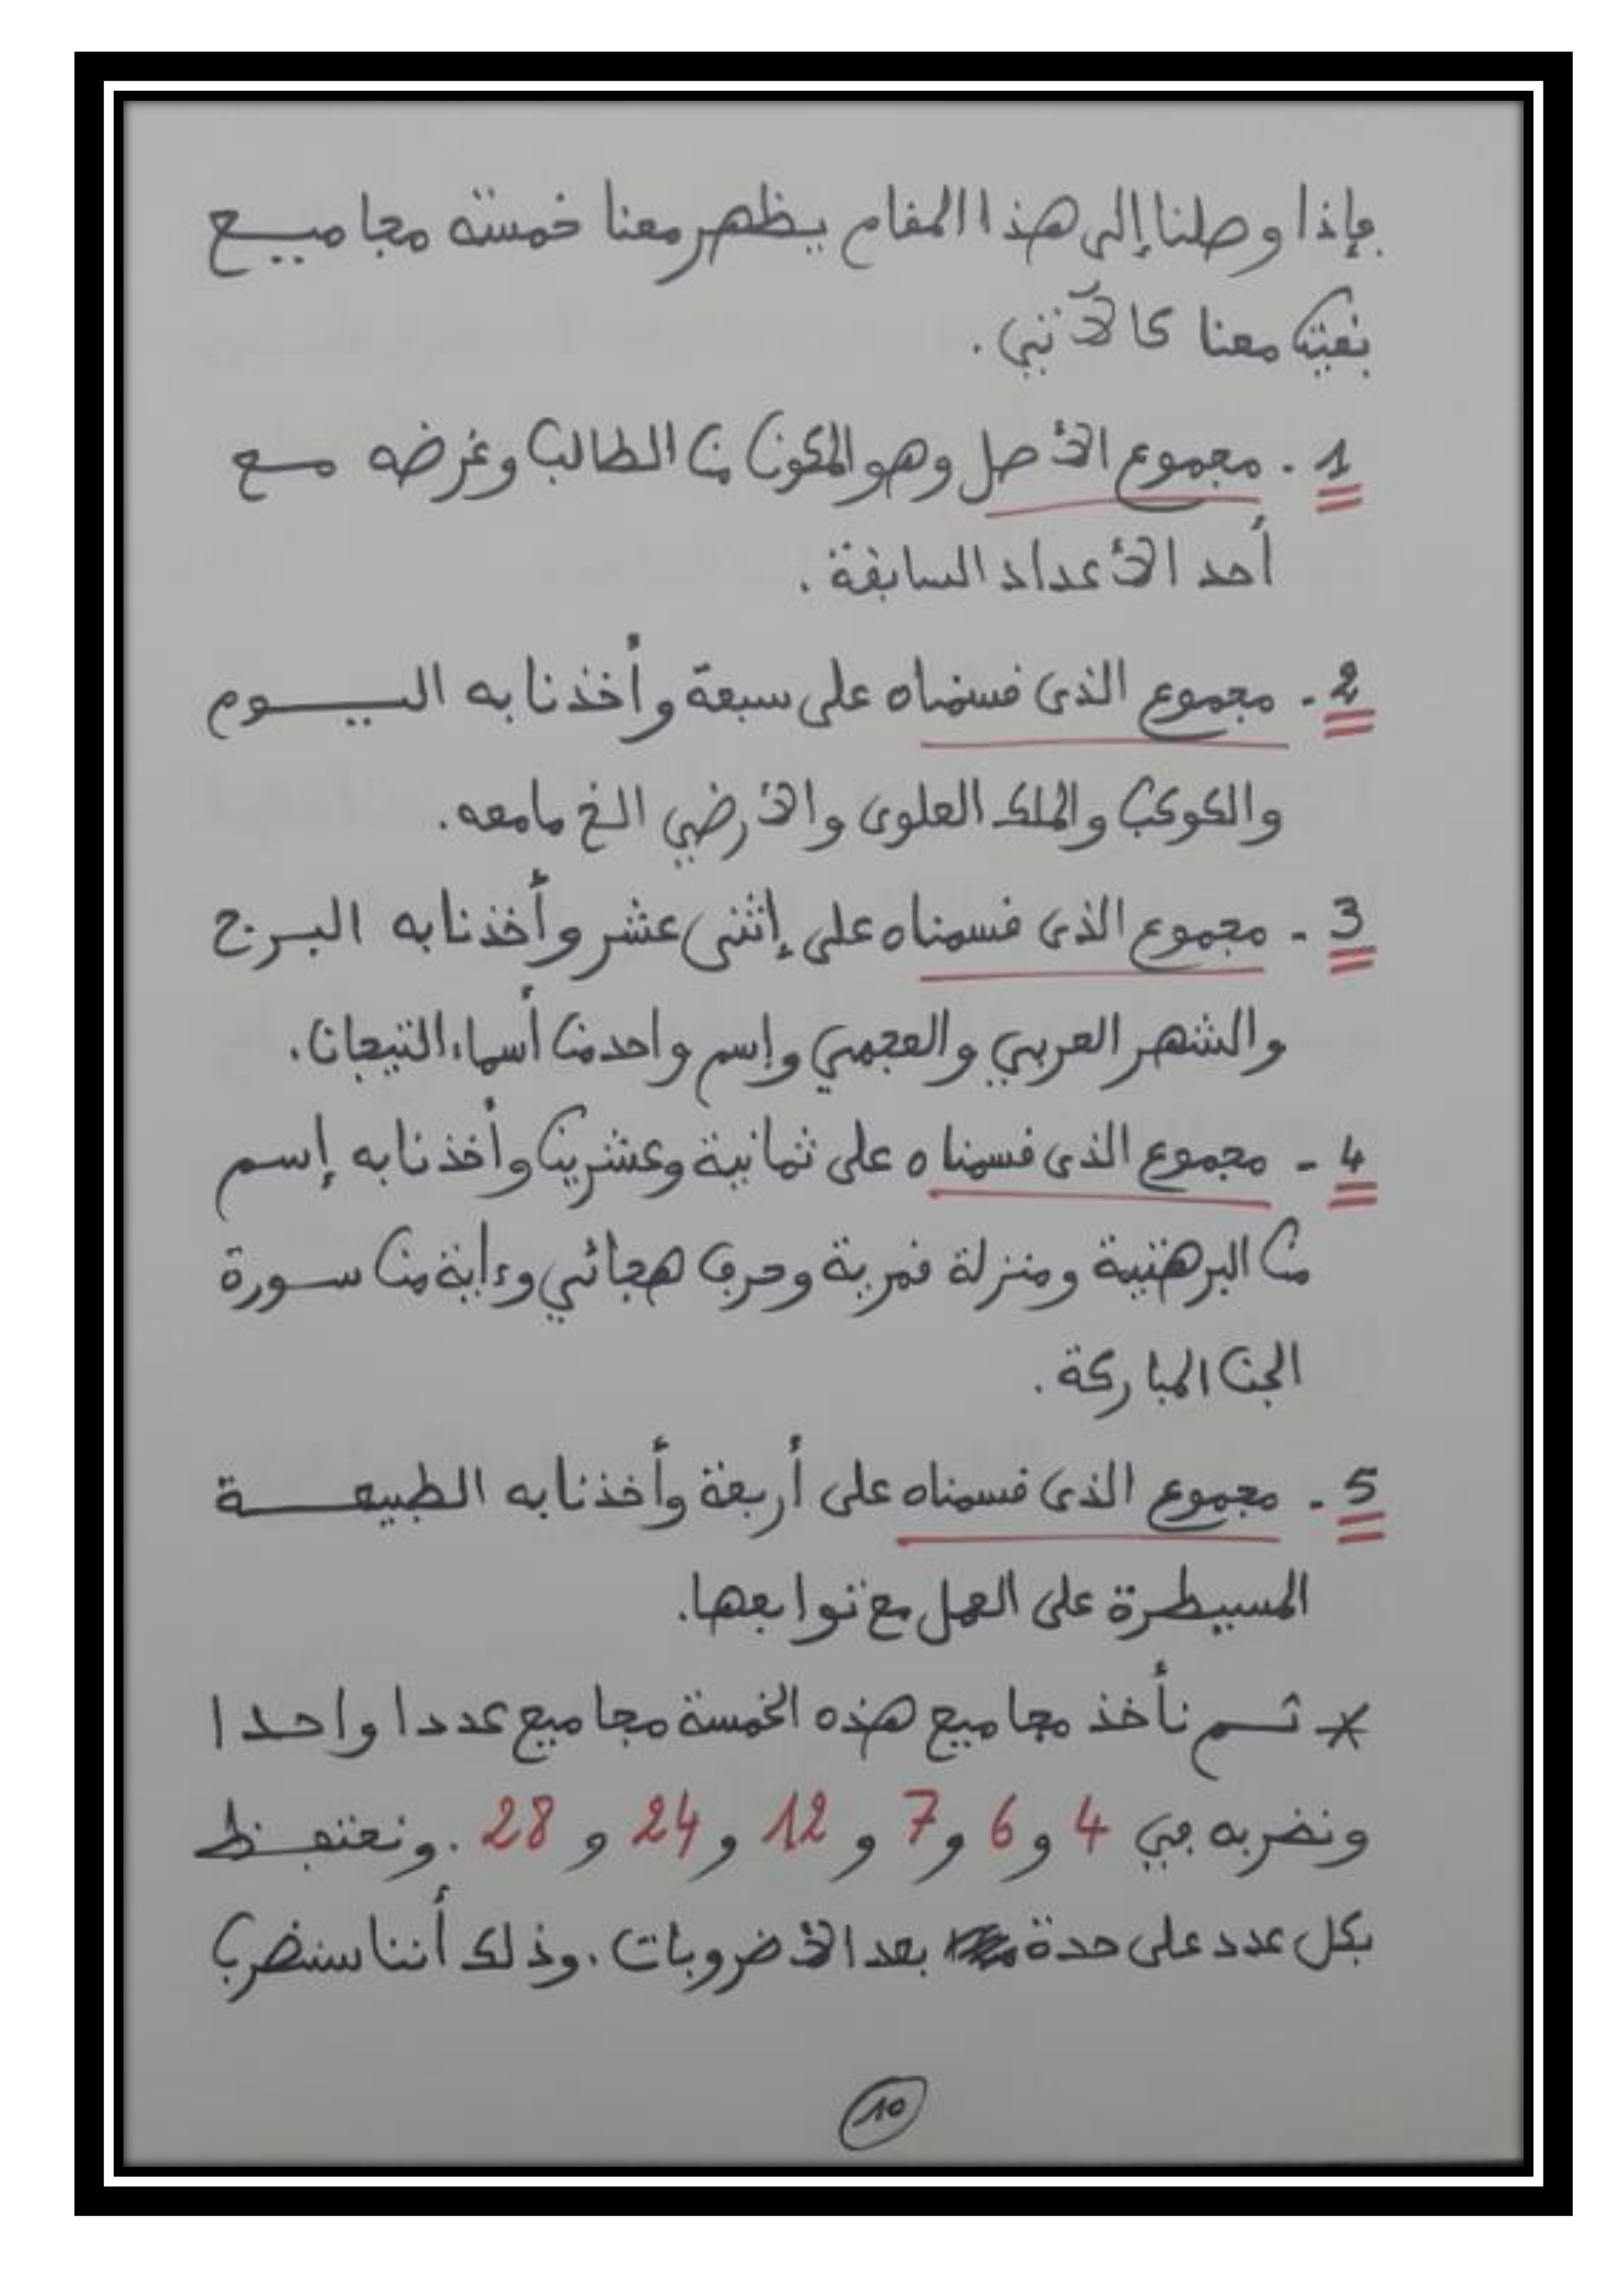 فإذا وصلنا إلى هذا المقام يظهر معنا خمسة مجاميع
بقيت معنا كالآتي.
1. مجموع الأصل وهو المكون من الطالب وغرضه مع
أحد الأعداد السابقة.
2- مجموع الذى قسمناه على سبعة وأخذنا به اليــــوم
والكوكب والملك العلوى والأرضي الخ مامعه.
3- مجموع الذى قسمناه على إثنى عشر وأخذنا به البرج
والشهر العربي والعجمي وإسم واحد من أسماء التيجان.
4- مجموع الذى قسمناه على ثمانية وعشرين وأخذنا به إسم
من البرهتية ومنزلة قمرية وحرف هجائي وءاية من سورة
الجن المباركة.
5- مجموع الذى قسمناه على أربعة وأخذنا به الطبيعــــة
المسيطرة على العمل مع توابعها.
* ثم نأخذ مجاميع هذه الخمسة مجاميع عددا واحدا
ونضربه في 4 و 6 و 7 و 12 و 24 و 28. ونحتفــظ
بكل عدد على حدة بعد الأضروبات. وذلك أننا سنضرب
10